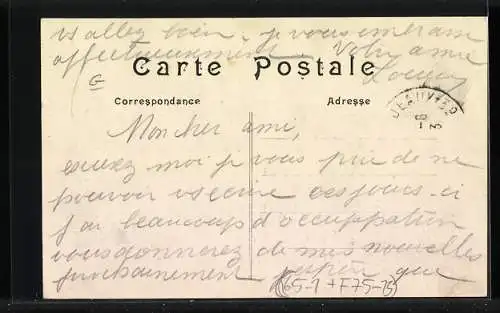 vs allez bien. je vous embrasse
affectueusement. Votre amie
Carte Postale
G
Correspondance
Adresse
BEAUVAIS
Mon cher ami,
escusez moi je vous prie de ne
pouvoir vs ecrire ces jours-ci
j'ai beaucoup d'occupation
vous donnerez de mes nouvelles
prochainement j'espère que
(65-1 + F75-15)